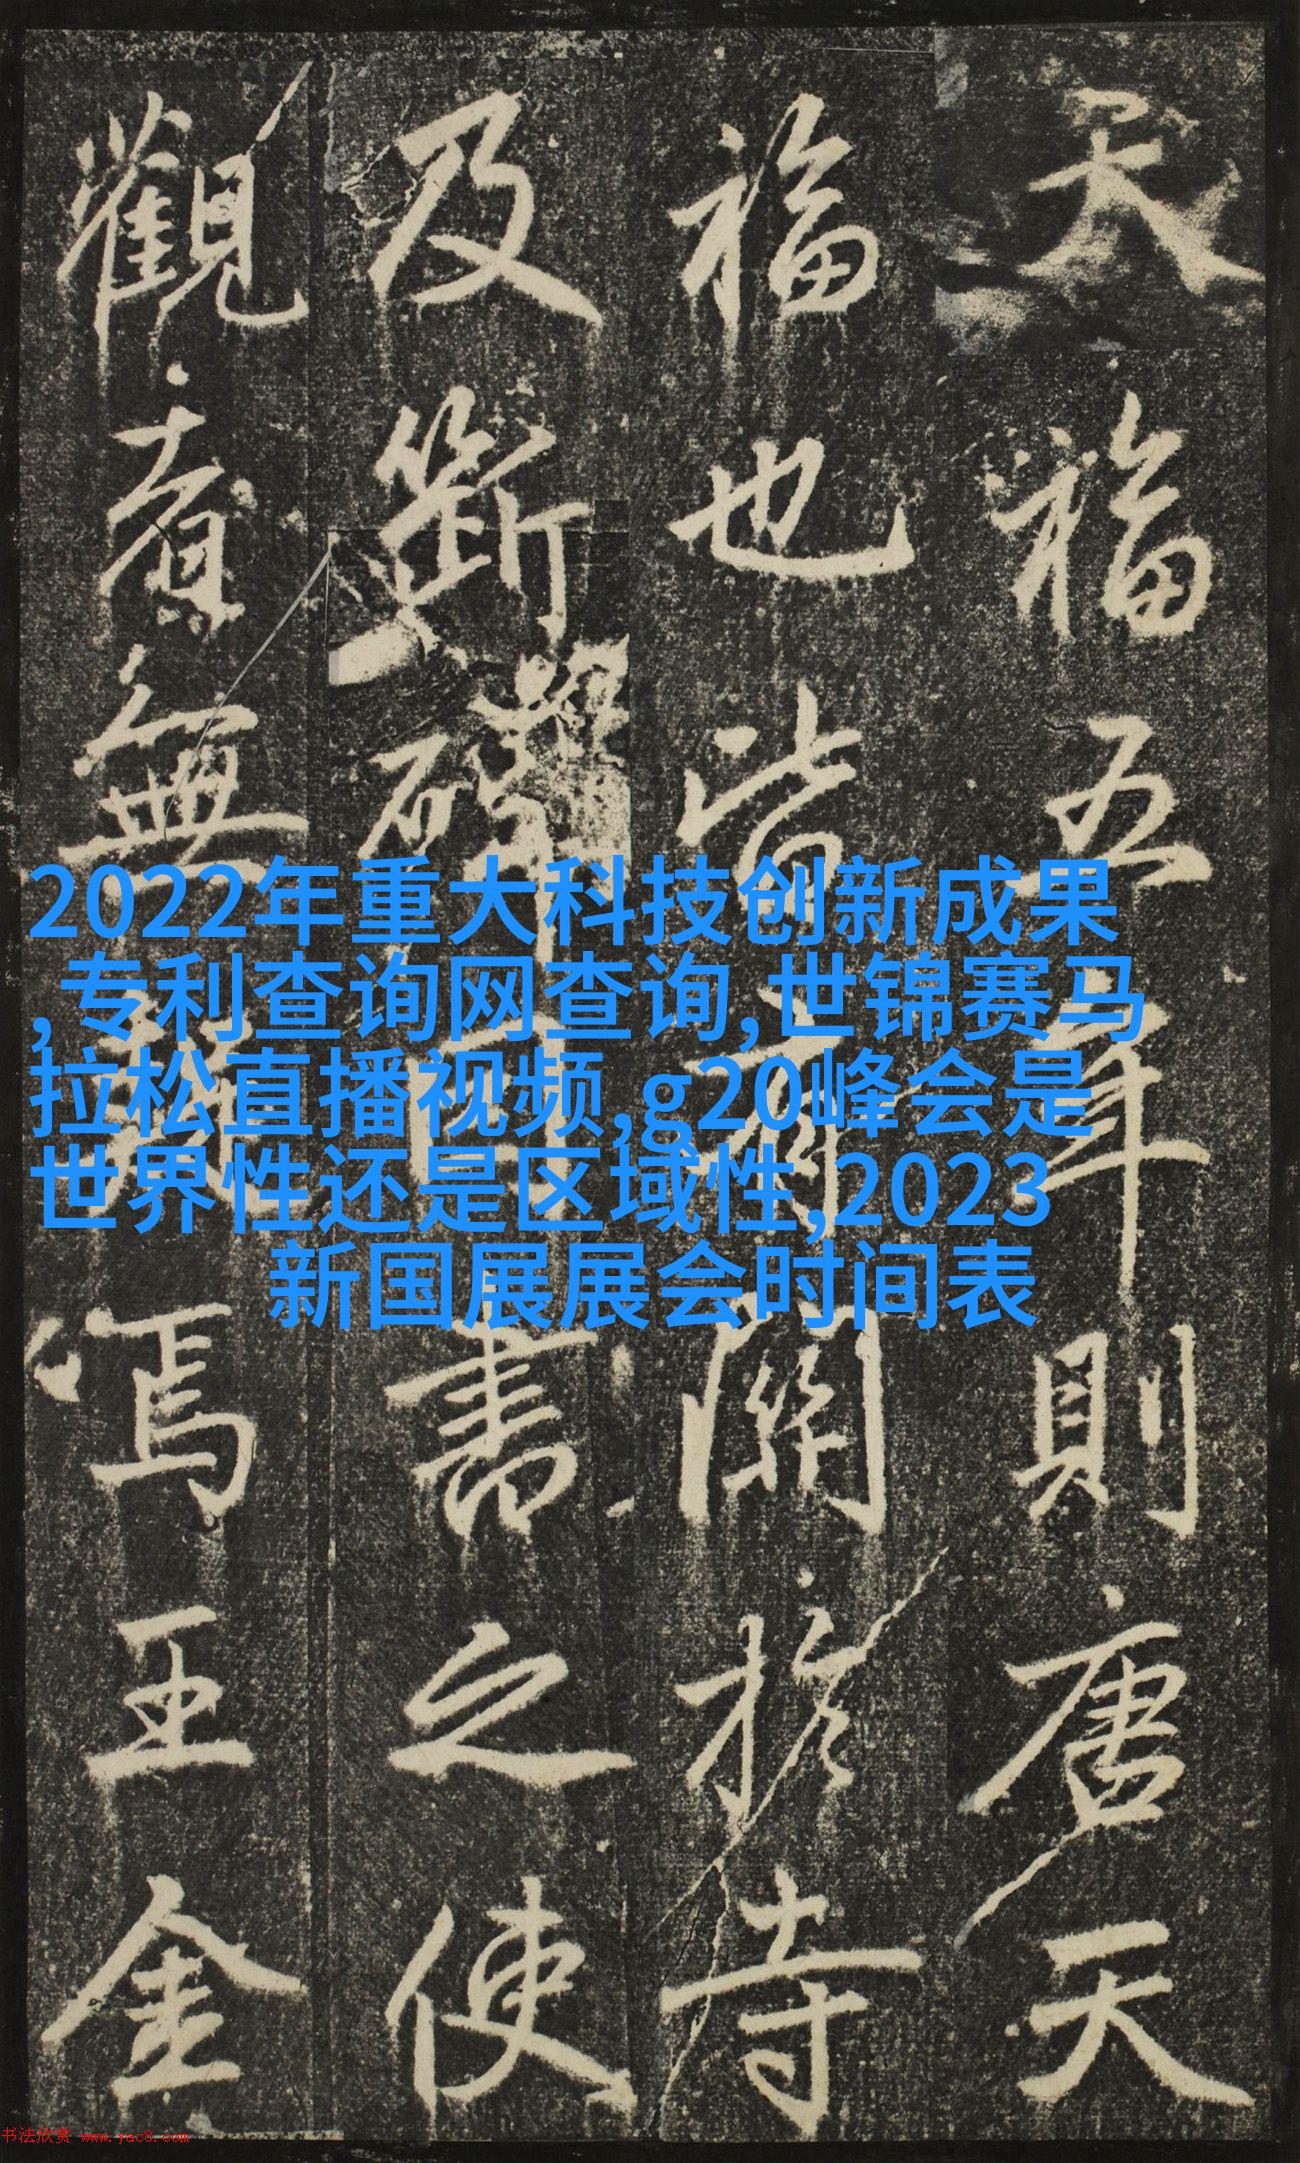 天福五年則唐天
福也皆有關扵寺
及斷碑書之使
觀無王金
2022年重大科技创新成果
,专利查询网查询,世锦赛马
拉松直播视频,g20峰会是
世界性还是区域性,2023
新国展展会时间表
书法欣赏 www.yac8.com